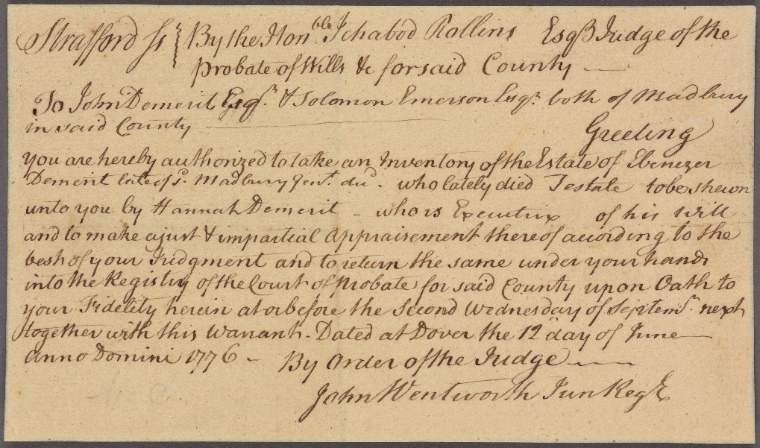 Strafford Ss By the Honble Ichabod Rollins Esqr Judge of the
Probate of Wills &c for said County
To John Demerit Esqr. & Solomon Emerson Esqr. both of Madbury
in said County
Greeting
You are hereby authorized to take an Inventory of the Estate of Ebenezer
Demerit late of sd. Madbury Gent. decd. who lately died Testate to be shewn
unto you by Hannah Demerit - who is Executrix of his Will
and to make a just & impartial Appraisement thereof according to the
best of your Judgment and to return the same under your hands
into the Registry of the Court of Probate for said County upon Oath to
your Fidelity herein at or before the Second Wednesday of Septemr. next
together with this Warrant - Dated at Dover the 12 day of June
Anno Domini 1776 - By Order of the Judge
John Wentworth Jun Regr